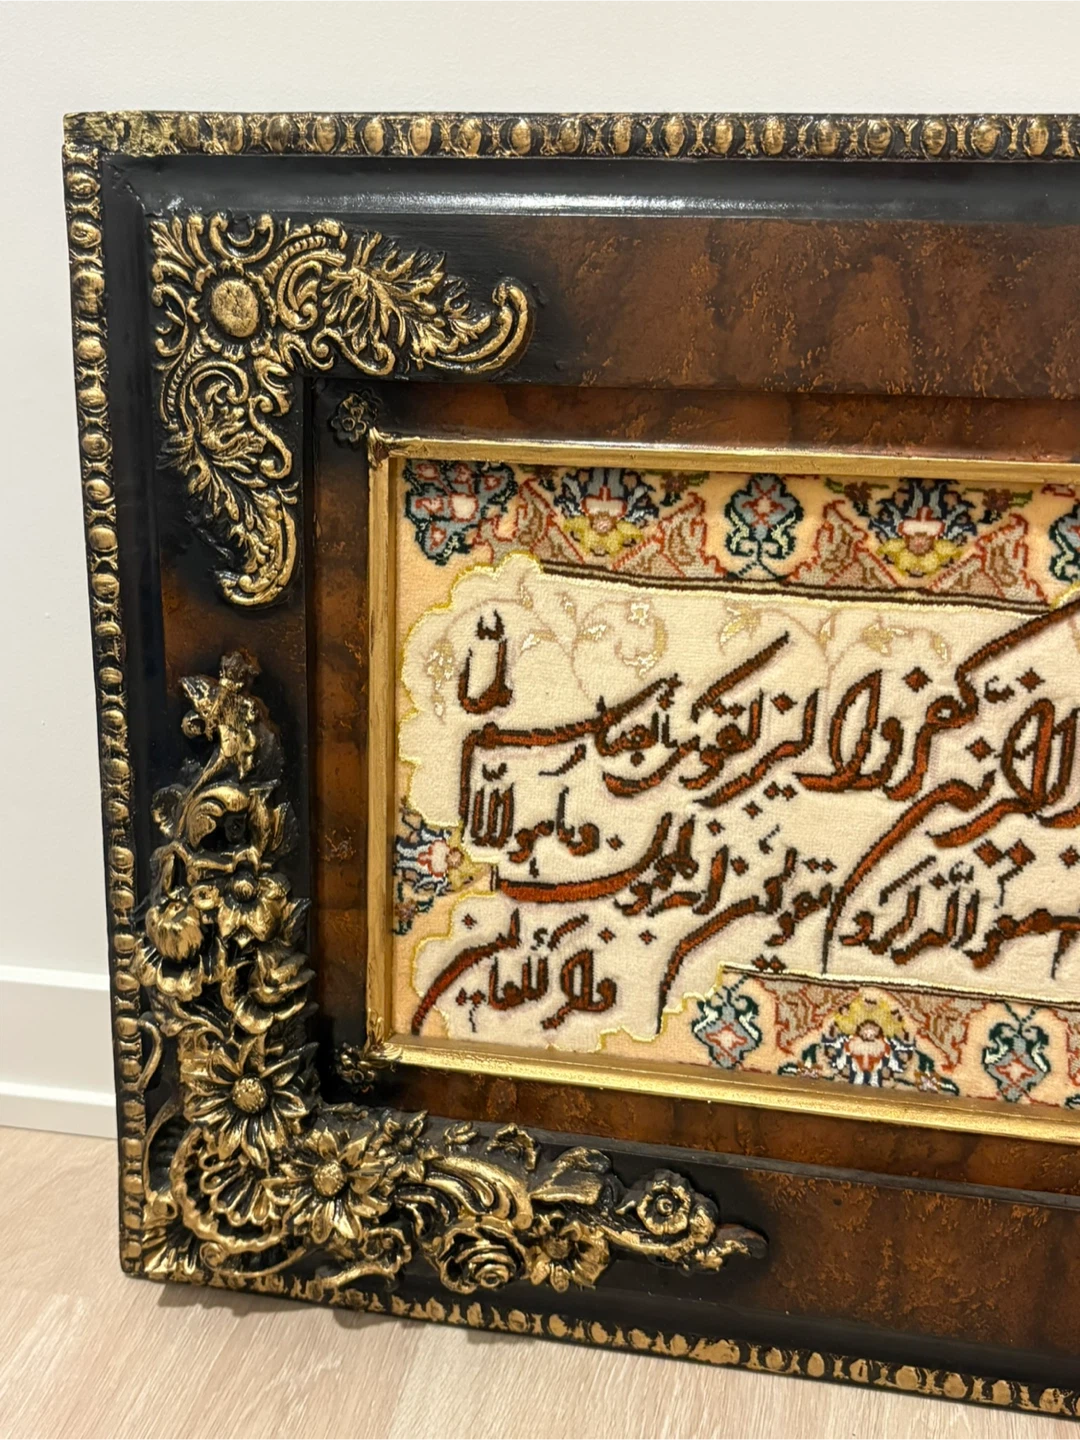 الذين كفروا ليزلقونك بأبصارهم لمّا
سمعوا الذكر و يقولون انه لمجنون وما هو الّا
ذكر للعالمين